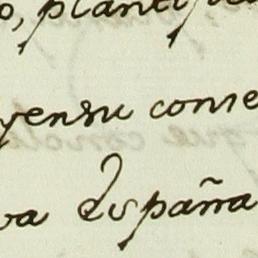 o, planti
yensu conse
va España